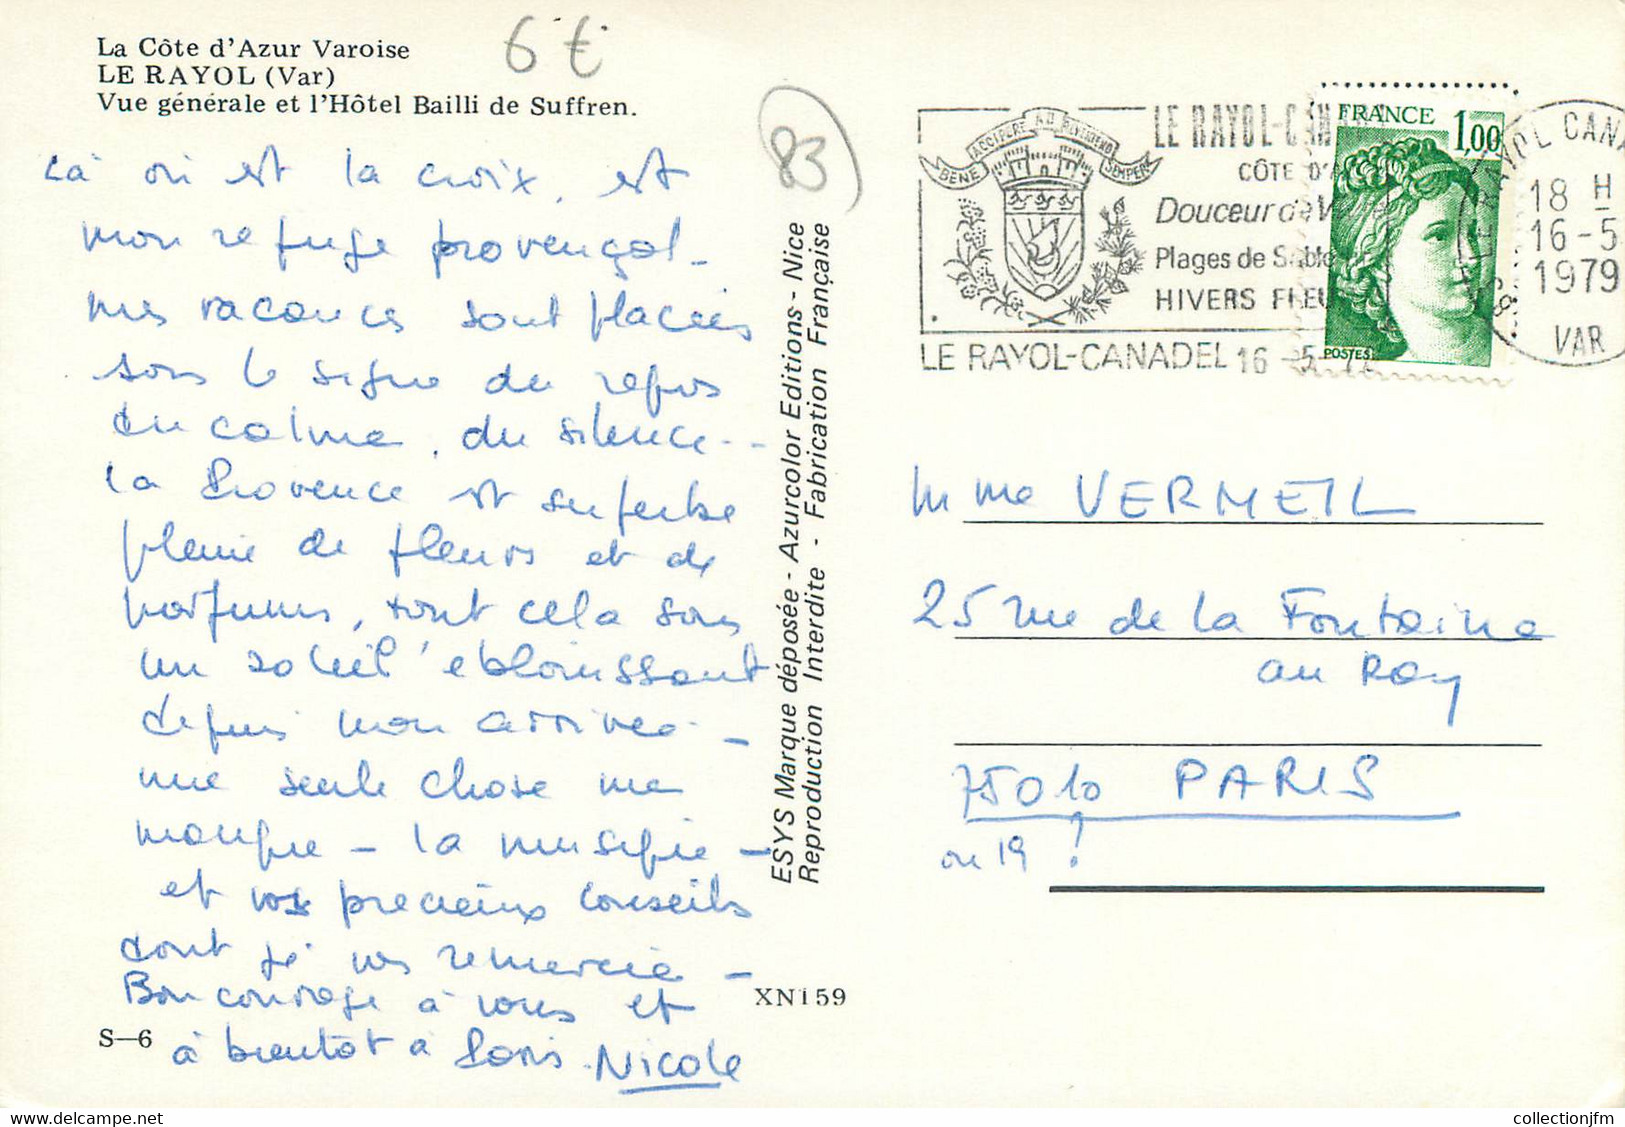 La Côte d'Azur Varoise
LE RAYOL (Var)
Vue générale et l'Hôtel Bailli de Suffren.
6 €
83
Là où est la croix, est
mon refuge provençal -
mes vacances sont placées
sous le signe du repos
du calme, du silence --
la Provence est superbe
pleine de fleurs et de
parfums, tout cela sous
un soleil éblouissant
depuis mon arrivée -
une seule chose me
manque - la musique -
et vos précieux conseils
dont je vous remercie -
Bon courage à vous et
à bientôt à Paris. Nicole
S—6
XN159
ESYS Marque déposée - Azurcolor Editions - Nice
Reproduction Interdite - Fabrication Française
BENE ACCIPERE AU REVENIENO SEMPERE
LE RAYOL-CANA
CÔTE D'A
Douceur de Vivre
Plages de Sable
HIVERS FLEU
LE RAYOL-CANADEL 16 -5-
FRANCE
1,00
POSTES
LE RAYOL CANA
18 H
16-5
1979
VAR
83
Mme VERMEIL
25 rue de la Fontaine
au Roy
75010 PARIS
ou 19 ?
collectionjfm